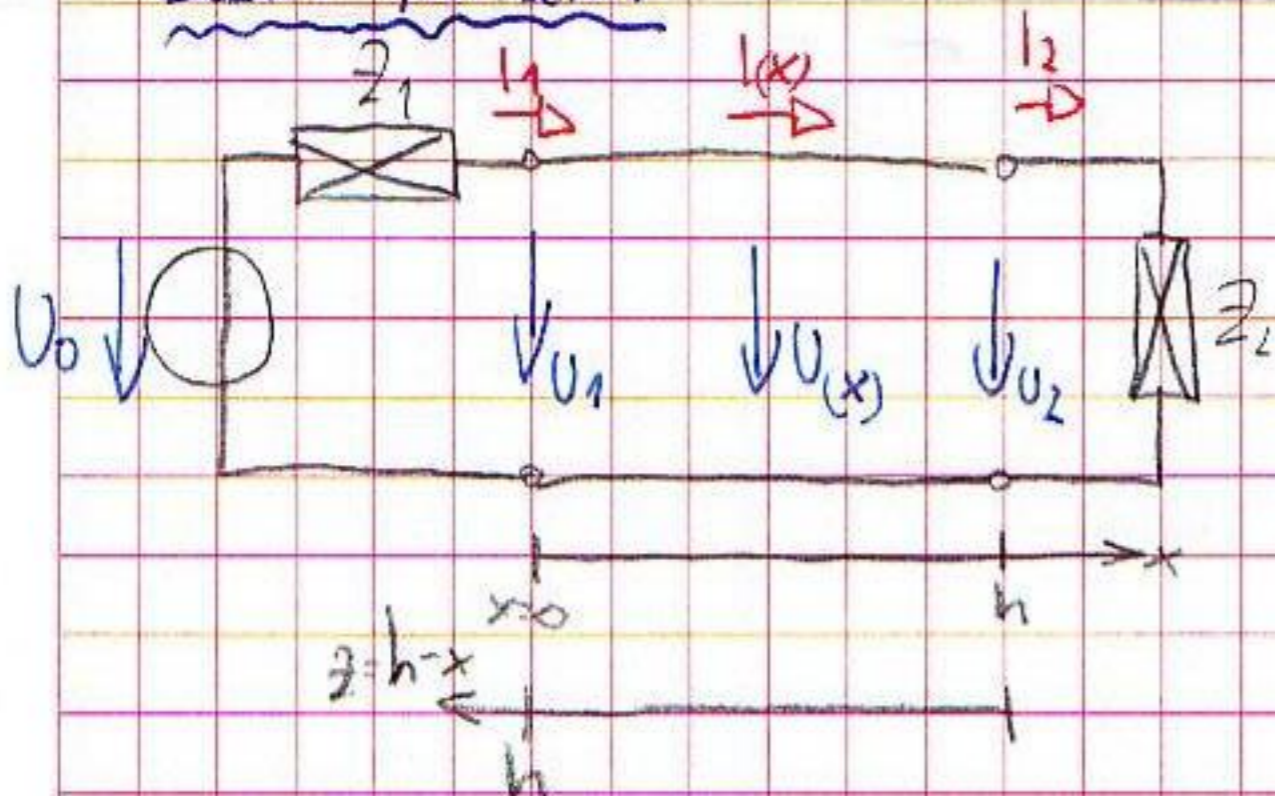 Z1 I1 I(x) I2
U0 U1 U(x) U2 Z2
x
x=0 h
z=h-x
h